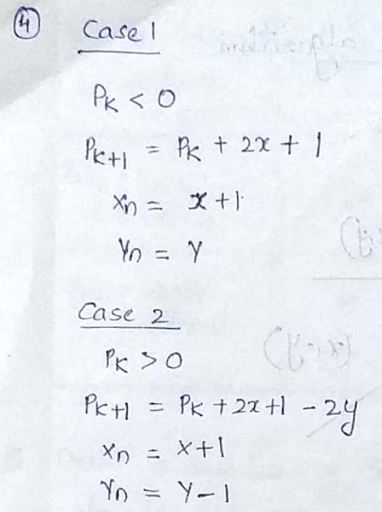 ④ Case 1
Pk < 0
Pk+1 = Pk + 2x + 1
xn = x + 1
Yn = Y
Case 2
Pk > 0
Pk+1 = Pk + 2x + 1 - 2y
xn = x + 1
Yn = Y - 1